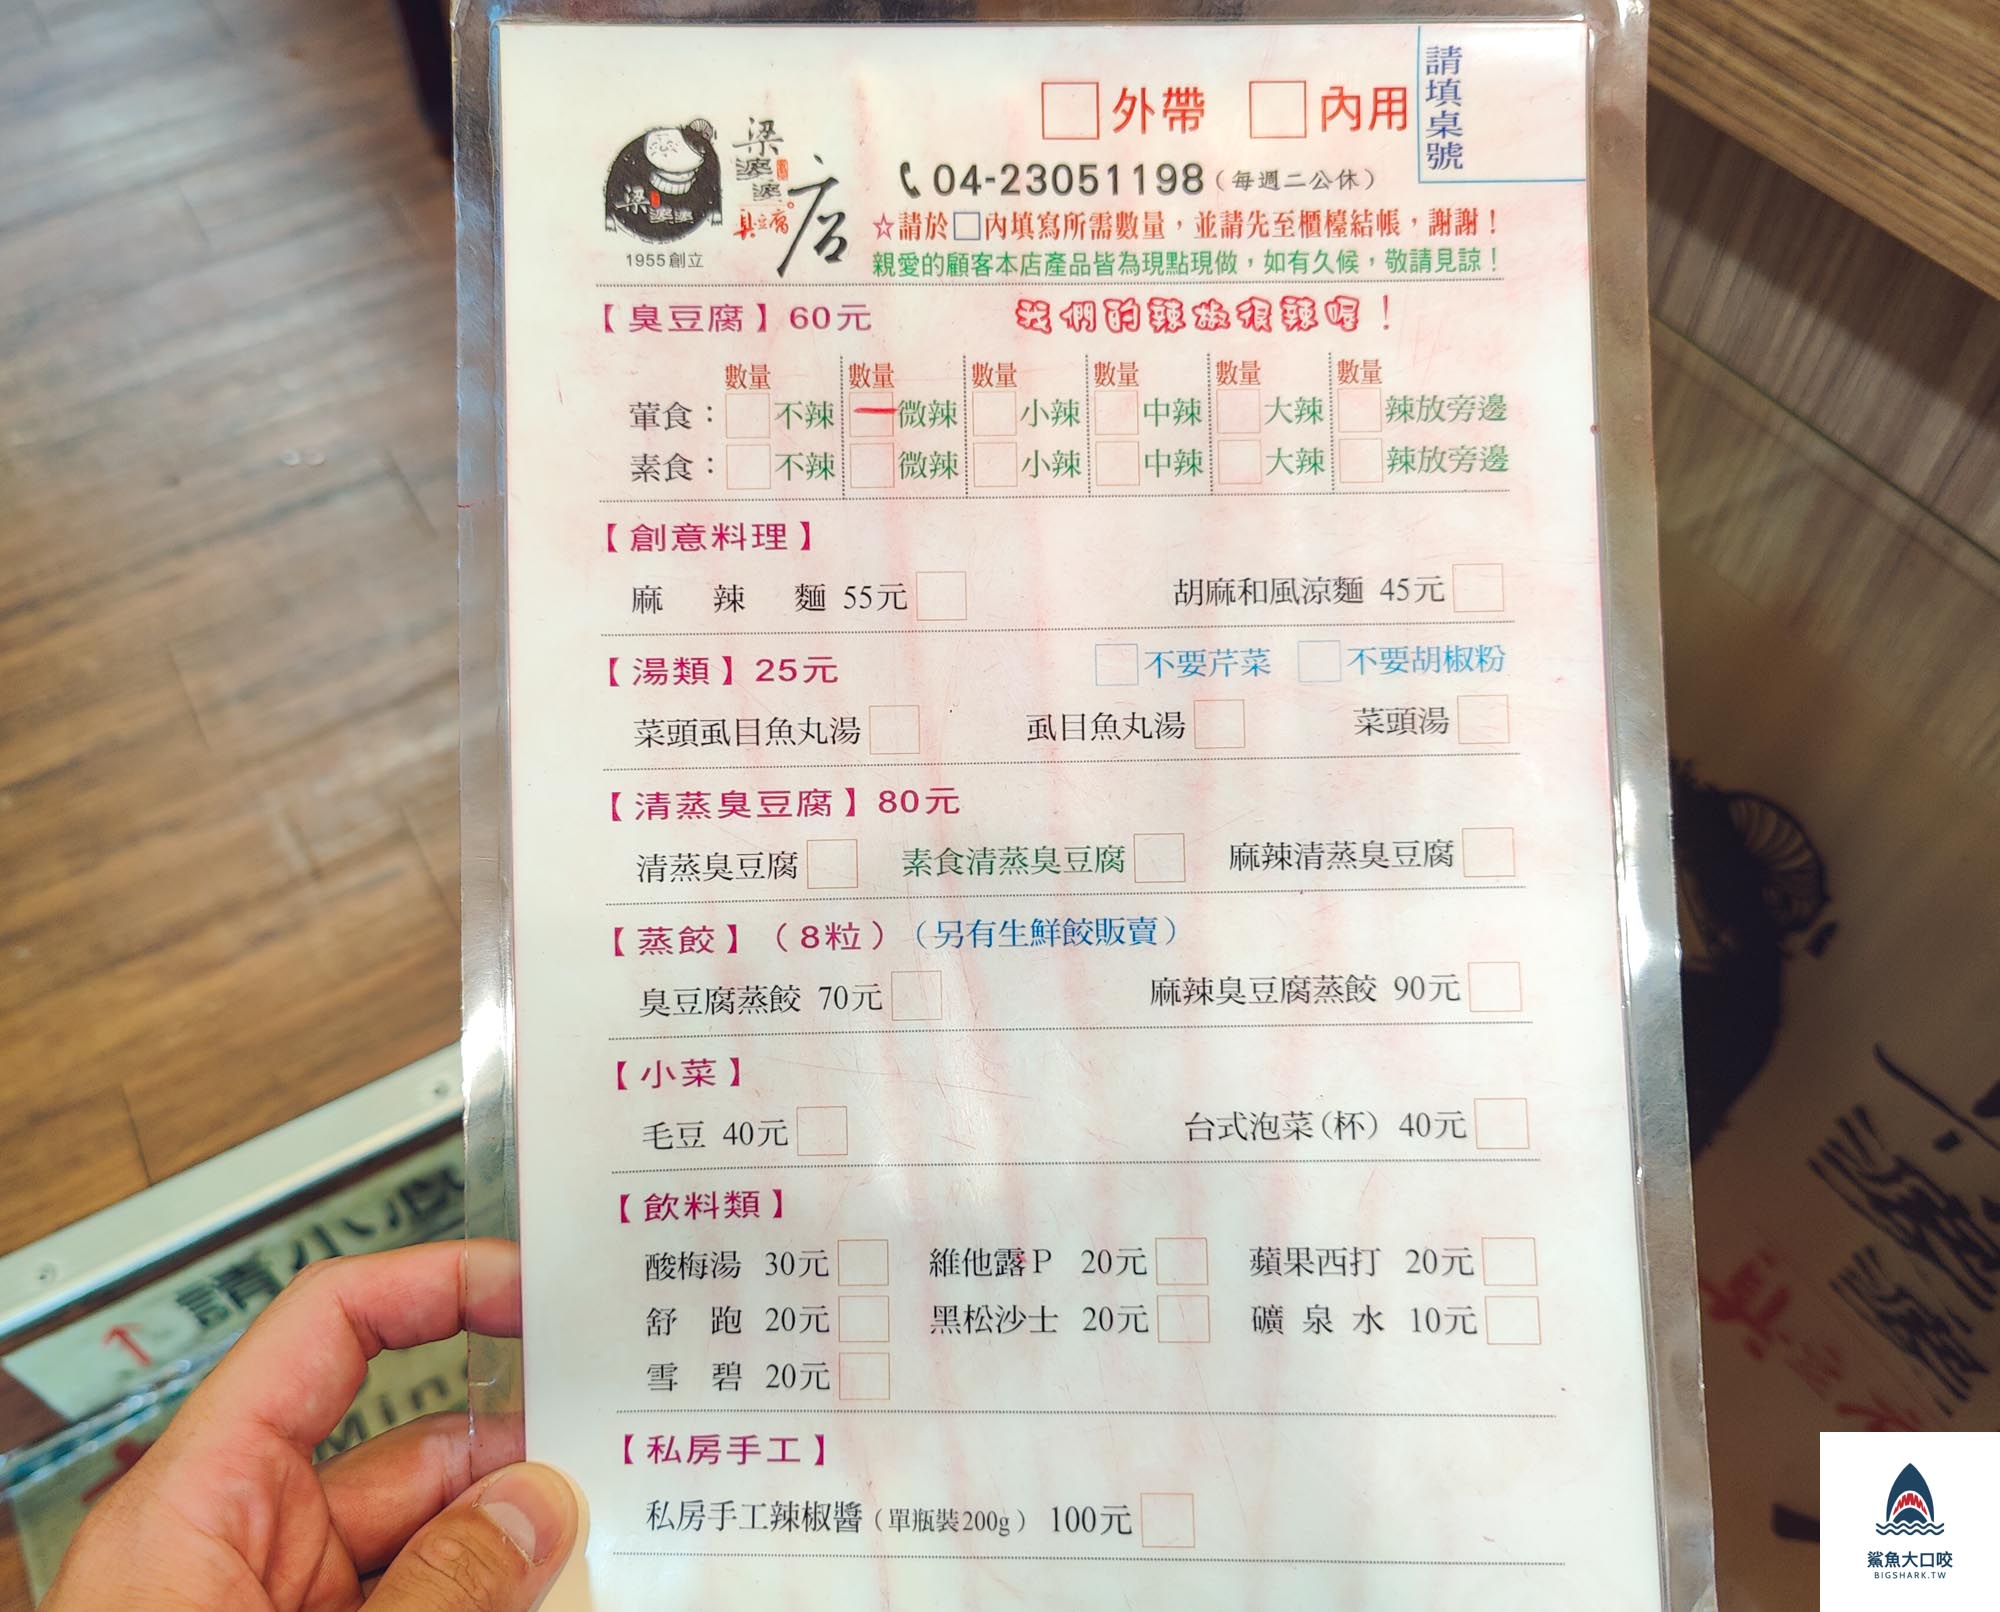 請填桌號
外帶 內用
梁婆婆
臭豆腐 店
梁婆婆
1955創立
04-23051198（每週二公休）
☆請於□內填寫所需數量，並請先至櫃檯結帳，謝謝！
親愛的顧客本店產品皆為現點現做，如有久候，敬請見諒！
【臭豆腐】60元 我們的辣椒很辣喔！
數量 數量 數量 數量 數量 數量
葷食： 不辣 一 微辣 小辣 中辣 大辣 辣放旁邊
素食： 不辣 微辣 小辣 中辣 大辣 辣放旁邊
【創意料理】
麻辣麵 55元 胡麻和風涼麵 45元
【湯類】25元 不要芹菜 不要胡椒粉
菜頭虱目魚丸湯 虱目魚丸湯 菜頭湯
【清蒸臭豆腐】80元
清蒸臭豆腐 素食清蒸臭豆腐 麻辣清蒸臭豆腐
【蒸餃】（8粒）（另有生鮮餃販賣）
臭豆腐蒸餃 70元 麻辣臭豆腐蒸餃 90元
【小菜】
毛豆 40元 台式泡菜(杯) 40元
【飲料類】
酸梅湯 30元 維他露P 20元 蘋果西打 20元
舒跑 20元 黑松沙士 20元 礦泉水 10元
雪碧 20元
【私房手工】
私房手工辣椒醬（單瓶裝200g）100元
請小心
Min
鯊魚大口咬
BIGSHARK.TW